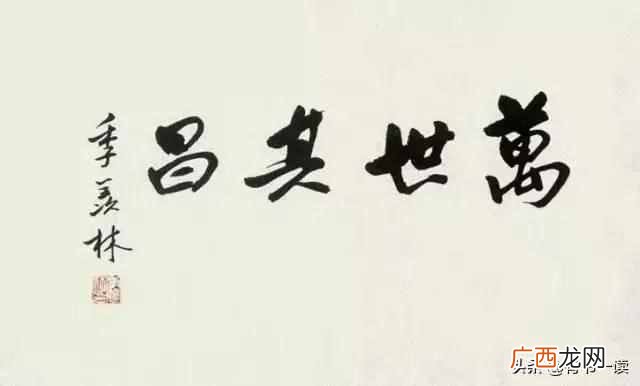 萬世其昌
季羡林
广西龙网
头条